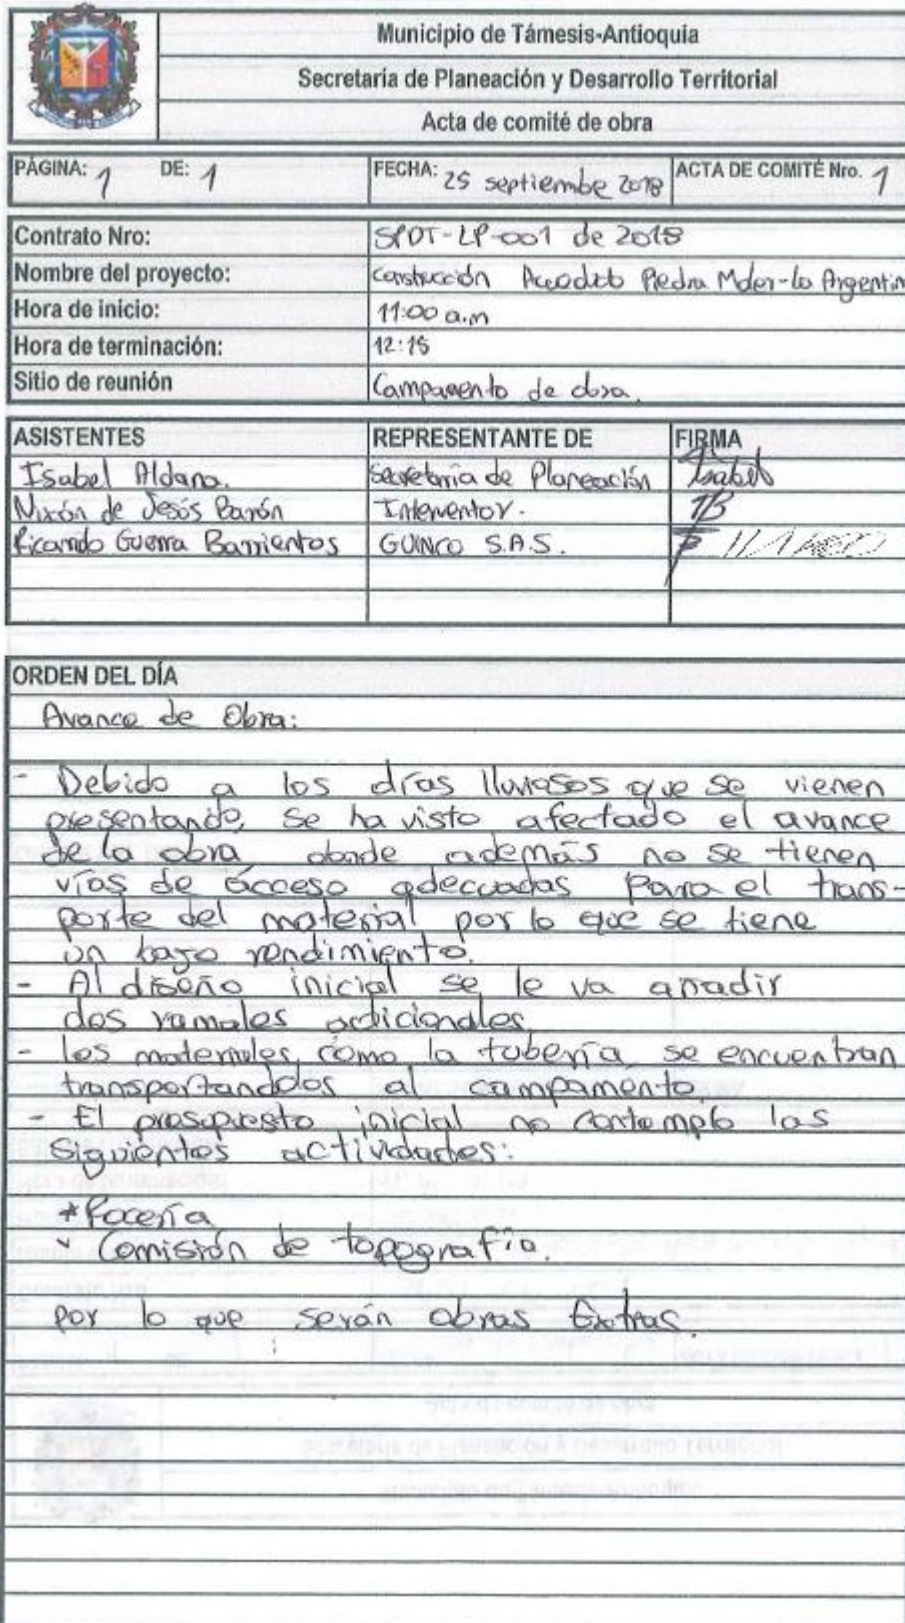 Municipio de Támesis-Antioquia
Secretaría de Planeación y Desarrollo Territorial
Acta de comité de obra
PÁGINA: 1 DE: 1 FECHA: 25 septiembre 2018 ACTA DE COMITÉ Nro. 1
Contrato Nro: SPDT-LP-001 de 2018
Nombre del proyecto: Construcción Acueducto Piedra Moler-la Argentin
Hora de inicio: 11:00 a.m
Hora de terminación: 12:15
Sitio de reunión Campamento de obra.
ASISTENTES REPRESENTANTE DE FIRMA
Isabel Aldana. Secretaría de Planeación Isabel
Nixón de Jesús Barón Interventor.
Ricardo Guerra Barrientos GUINCO S.A.S.
ORDEN DEL DÍA
Avance de Obra:
- Debido a los días lluviosos que se vienen
presentando, se ha visto afectado el avance
de la obra donde además no se tienen
vías de acceso adecuadas para el trans-
porte del material por lo que se tiene
un bajo rendimiento.
- Al diseño inicial se le va añadir
dos ramales adicionales.
- los materiales como la tubería, se encuentran
transportandolos al campamento.
- El presupuesto inicial no contemplo las
siguientes actividades:
* Rocería
* Comisión de topografía.
por lo que serán obras Extras.